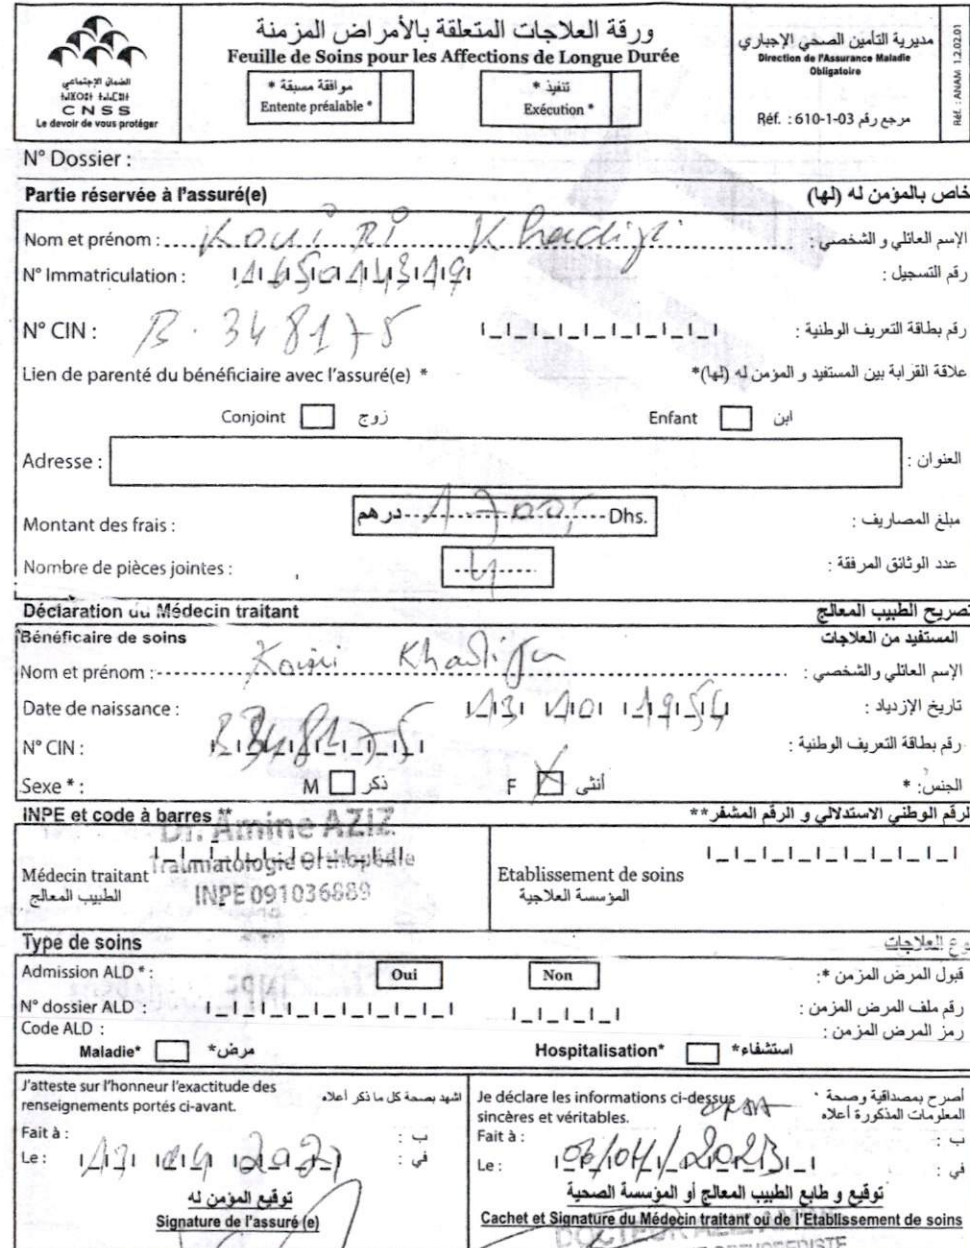 الضمان الإجتماعي
CNSS
Le devoir de vous protéger
ورقة العلاجات المتعلقة بالأمراض المزمنة
Feuille de Soins pour les Affections de Longue Durée
موافقة مسبقة *
Entente préalable *
تنفيذ *
Exécution *
مديرية التأمين الصحي الإجباري
Direction de l'Assurance Maladie
Obligatoire
Réf. : 610-1-03 مرجع رقم
Réf. : ANAM 1.2.02.01
N° Dossier :
Partie réservée à l'assuré(e) خاص بالمؤمن له (لها)
Nom et prénom : Kouiri Khadija الإسم العائلي و الشخصي :
N° Immatriculation : 165014319 رقم التسجيل :
N° CIN : B.348175 رقم بطاقة التعريف الوطنية :
Lien de parenté du bénéficiaire avec l'assuré(e) * علاقة القرابة بين المستفيد و المؤمن له (لها)*
Conjoint زوج Enfant ابن
Adresse : العنوان :
Montant des frais : درهم Dhs. مبلغ المصاريف :
Nombre de pièces jointes : 4 عدد الوثائق المرفقة :
Déclaration du Médecin traitant تصريح الطبيب المعالج
Bénéficaire de soins المستفيد من العلاجات
Nom et prénom : Kouiri Khadija الإسم العائلي والشخصي :
Date de naissance : 13 10 1954 تاريخ الإزدياد :
N° CIN : B348175 رقم بطاقة التعريف الوطنية :
Sexe * : M ذكر F أنثى الجنس: *
INPE et code à barres ** لرقم الوطني الاستدلالي و الرقم المشفر**
Dr. Amine AZIZ
Traumatologie Orthopédie
INPE 091036889
Médecin traitant
الطبيب المعالج
Etablissement de soins
المؤسسة العلاجية
Type de soins وع العلاجات
Admission ALD * : Oui Non قبول المرض المزمن *:
N° dossier ALD : رقم ملف المرض المزمن :
Code ALD : رمز المرض المزمن :
Maladie* مرض* Hospitalisation* استشفاء*
J'atteste sur l'honneur l'exactitude des
renseignements portés ci-avant.
اشهد بصحة كل ما ذكر أعلاه
Fait à : ب :
Le : في :
توقيع المؤمن له
Signature de l'assuré (e)
Je déclare les informations ci-dessus
sincères et véritables.
أصرح بمصداقية وصحة
المعلومات المذكورة أعلاه
Fait à : ب :
Le : 06/04/2023 في :
توقيع و طابع الطبيب المعالج أو المؤسسة الصحية
Cachet et Signature du Médecin traitant ou de l'Etablissement de soins